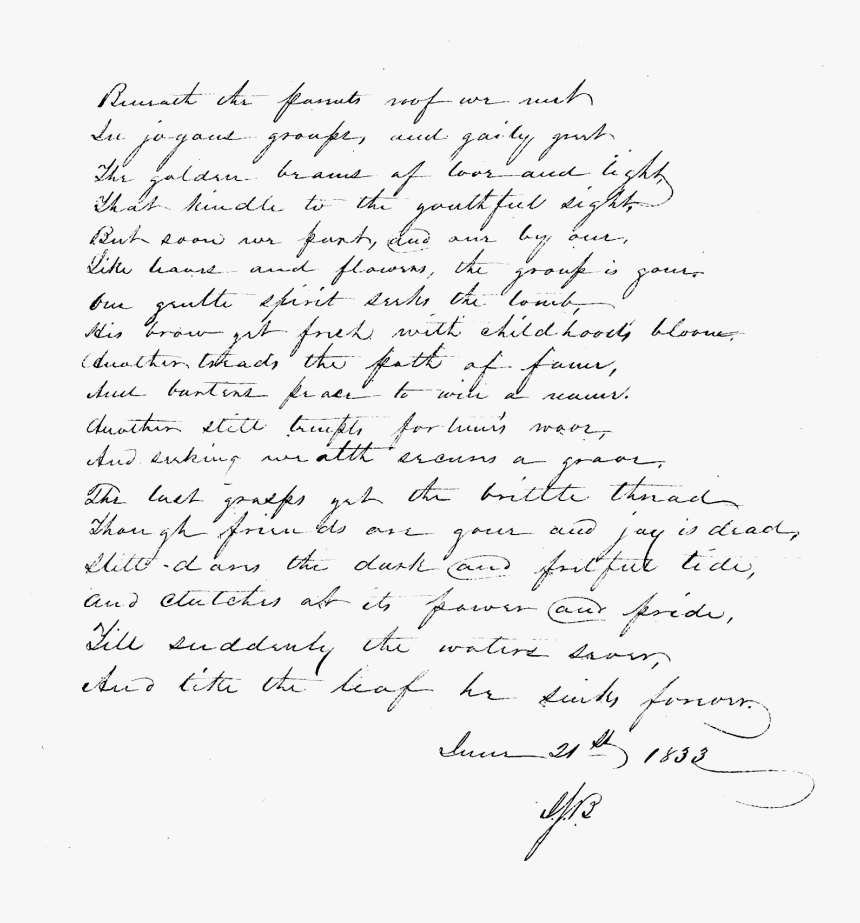 Beneath the parents roof we meet
In joyous groups, and gaily greet
The golden beams of love and light,
That kindle to the youthful sight,
But soon we part, and one by one,
Like leaves and flowers, the group is gone.
One gentle spirit seeks the tomb,
His brow yet fresh with childhood's bloom.
Another treads the path of fame,
And barters peace to win a name.
Another still tempts fortune's wave,
And seeking wealth secures a grave.
The last grasps yet the brittle thread
Though friends are gone and joy is dead,
Still dares the dark and fretful tide,
And clutches at its power and pride,
Till suddenly the waters sever,
And like the leaf he sinks forever.
June 21st 1833